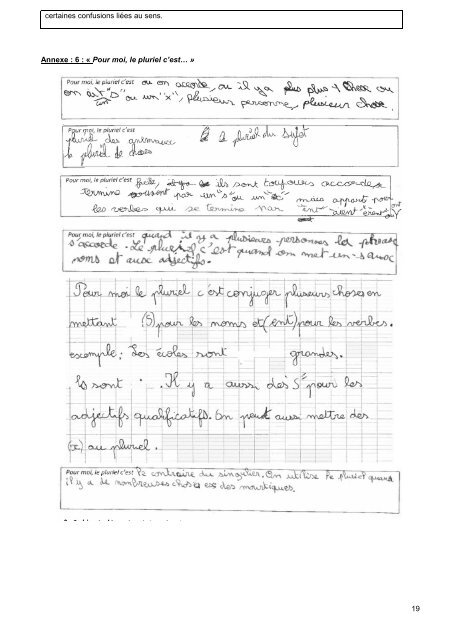 certaines confusions liées au sens.
Annexe : 6 : « Pour moi, le pluriel c'est… »
Pour moi, le pluriel c'est ou on accorde, ou il y a plus plus 1 chose ou
on "s" ou un "x", plusieurs personne, plusieur chose.
Pour moi, le pluriel c'est
pluriel des animaux le pluriel du sujet
le pluriel de choses
Pour moi, le pluriel c'est ils sont toujours accorder
termine souvent par un "s" ou un "x" mais appart pour
les verbes qui se termine par "ent" aient èrent ont
Pour moi, le pluriel c'est quand il y a plusieures personnes la phrase
s'accorde. Le pluriel c'est quand on met un -s aux
noms et aux adjectifs.
Pour moi le pluriel c'est conjuger plusieurs choses en
mettant (S) pour les noms et (ent) pour les verbes.
exemple : Les écoles sont grandes.
Ils sont . Il y a aussi des "S" pour les
adjectifs qualificatifs. On peut aussi mettre des
(x) au pluriel.
Pour moi, le pluriel c'est le contraire du singulier. On utilise le pluriel quand
il y a de nombreuses choses ex des moustiques.
19